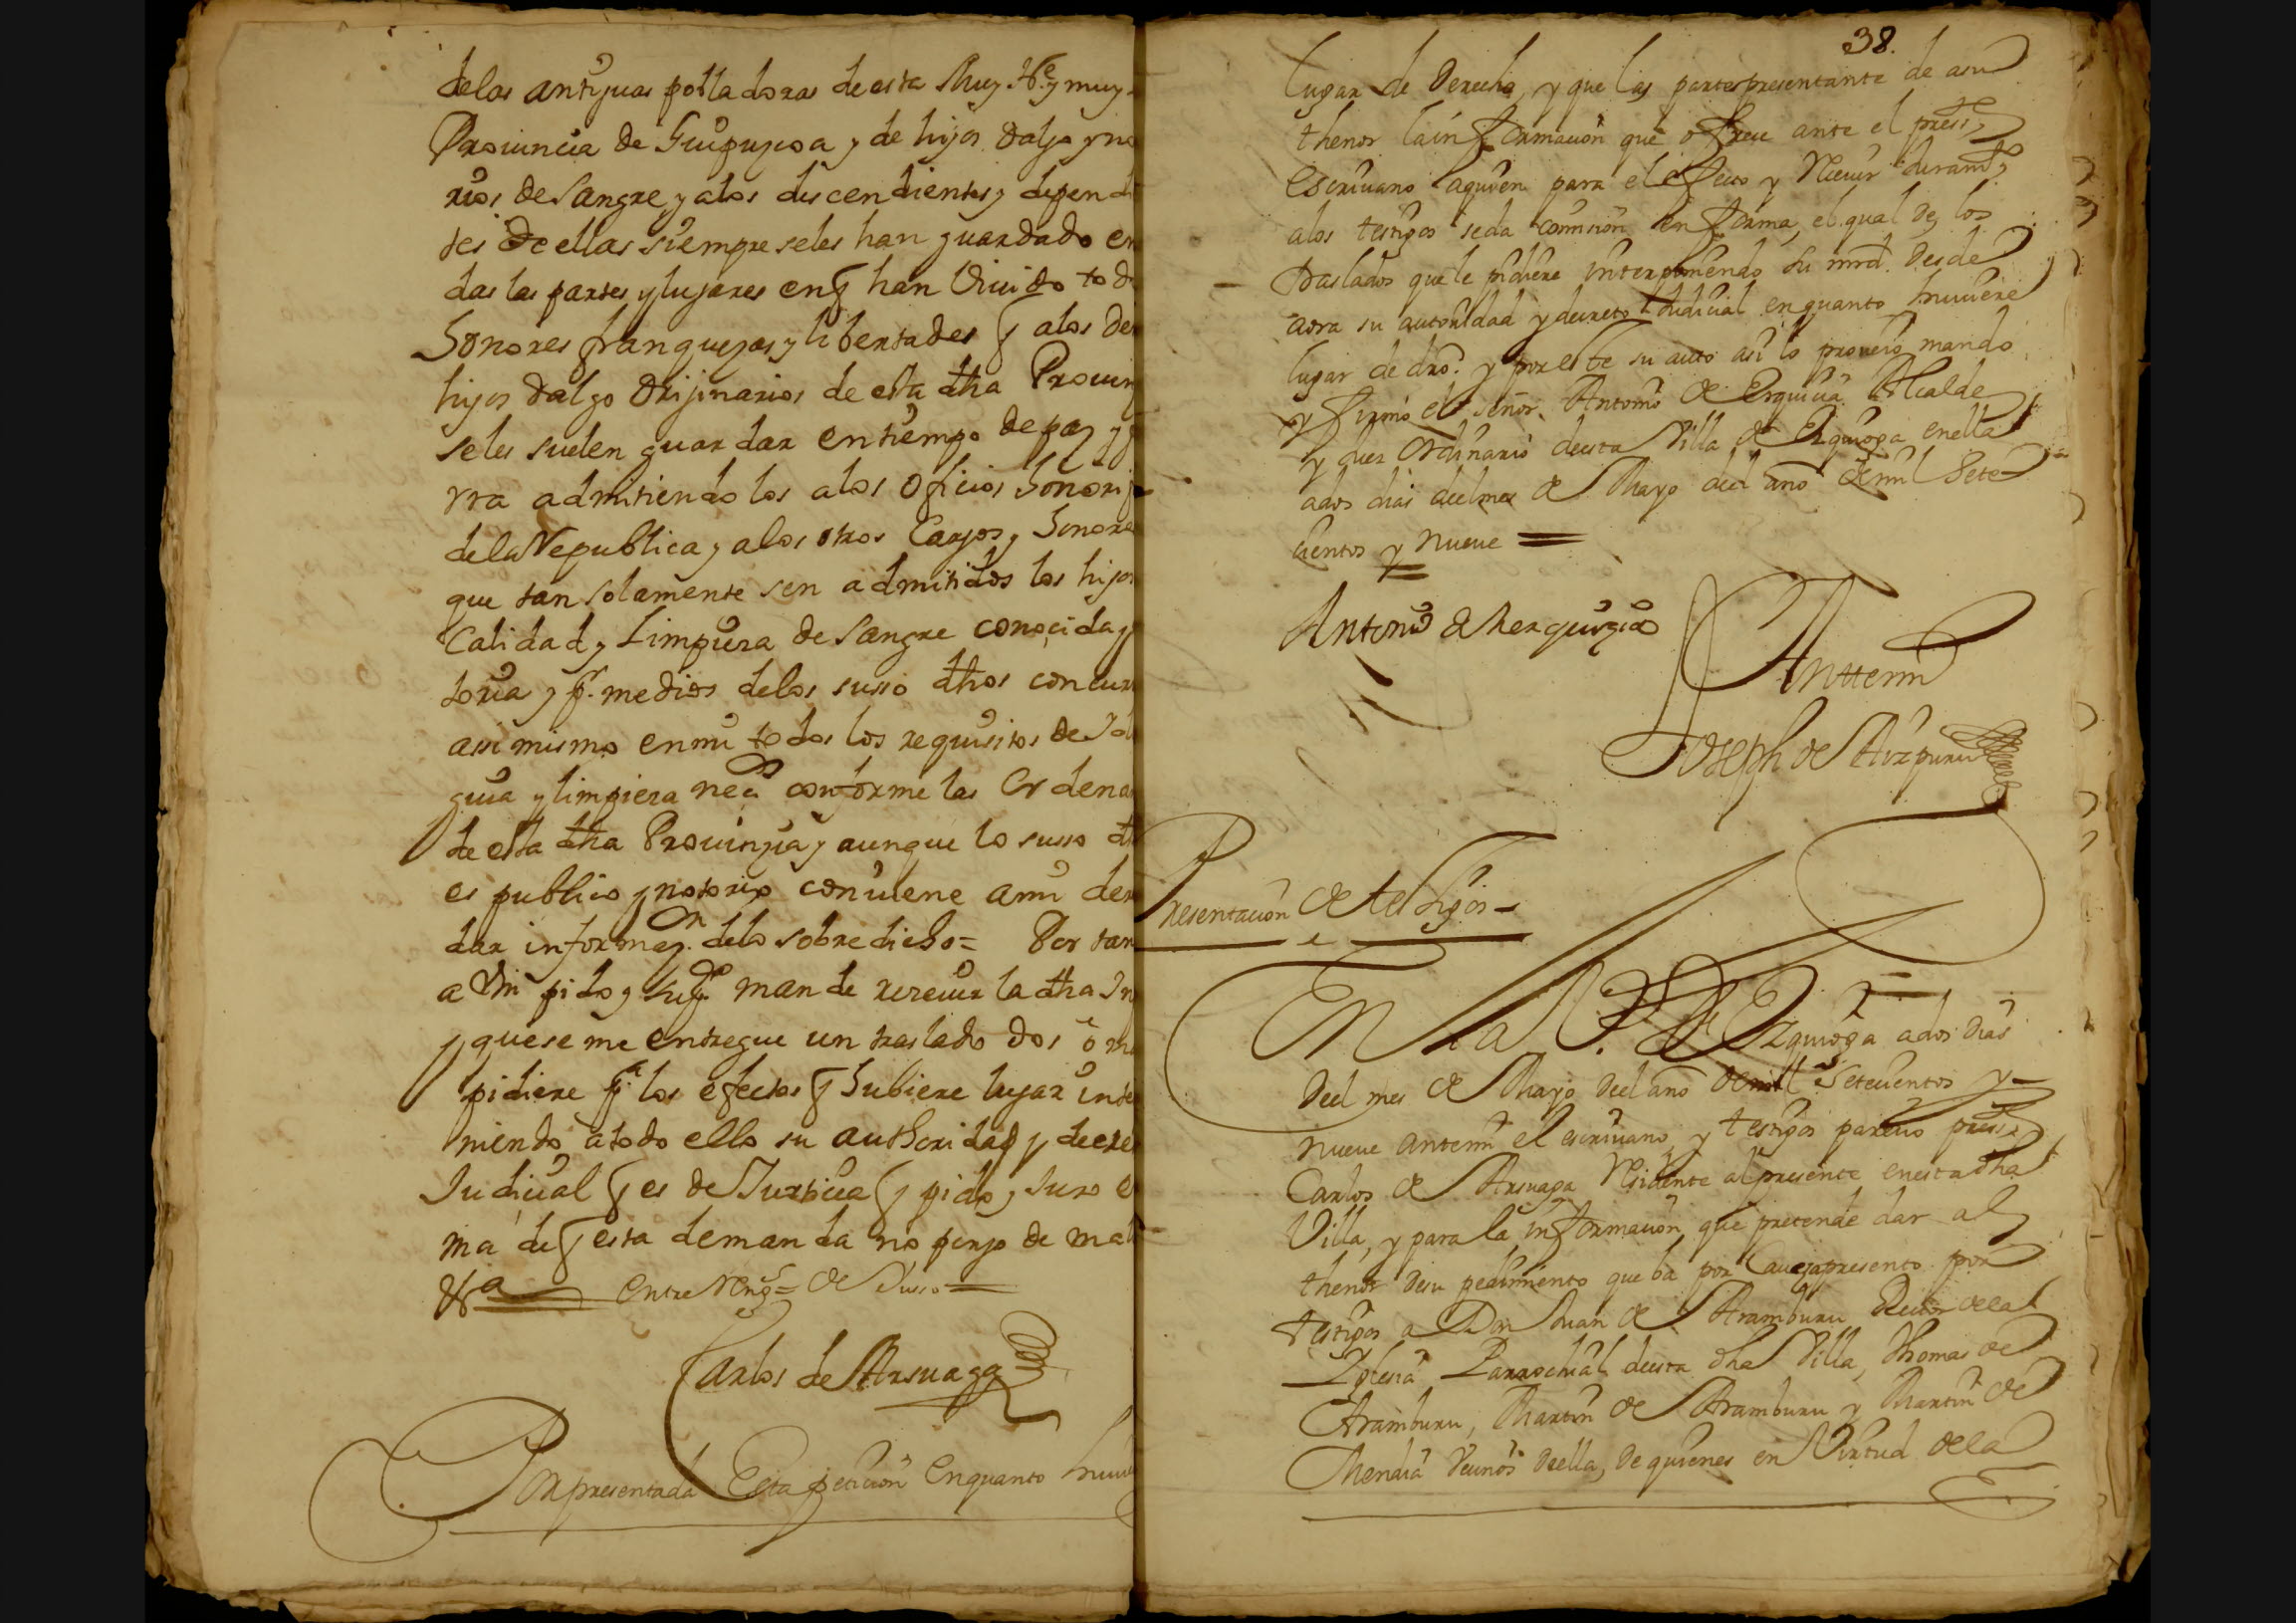 delas antiguas pobladoras de esta Muy N.e y muy
Prouincia de Guipuzcoa y de hijos dalgo y no
rios de Sangre y alos descendientes y dependi
tes de ellas siempre seles han guardado en
das las partes y lugares enq han Viuido tod
honores franquezas y libertades q alos de
hijos dalgo Orijinarios de esta dha Prouin
seles suelen guardar en tiempo de paz y
rra admitiendo los alos oficios honori
dela Republica y alos otros Cargos y honore
que tan solamente sen admitidos los hijos
Calidad y Limpieza de Sangre conocida y
toria y p.r medios delos susso dhos concur
assi mismo enmi todos los requisitos de
guia y limpieza neça conforme las Ordena
de esta dha Prouinçia y aunque lo susso d
es publico y notorio conuiene ami der
dar informaçn delo sobredicho = Por tan
a Vm pido y supco mande receuir la dha In
y quese me entregue un traslado dos ô m
pidiere pa. los efectos q hubiere lugar inte
niendo a todo ello su authoridad y decre
Judiçial q es de Justicia q pido y Juro e
ma de q esta demanda no pongo de mal
&a entre Rengs = de Susso =
Carlos de Arsuaga
Por presentada Esta peticion Enquanto huui
38.
lugar de Derecho, y que las parte presentante de asu
thenor la informacion que ofreze ante el press.te
escriuano aquien para el efecto y Receuir Juram.to
alos testigos seda comission en forma, el qual de los
traslados que le pidiere interponiendo su mrd. desde
aora su autoridad y decreto Judicial enquanto huuiere
lugar de dro. y por este su auto assi lo proueio mando
y firmo el señor Antonio de Erquicia Alcalde
y Juez Ordinario deesta Villa de Ezquioga enella
ados dias delmes de Mayo del año de mil Sete
cientos y nueue =
Antonio de herquizia
Anttemi
Joseph de Aizpuru
Presentacion de testigos =
En la V.a de Ezquioga ados dias
deel mes de Mayo deel año de mill Setecientos y
nueue antemi el escriuano y testigos pareçio press.te
Carlos de Arsuaga Residente al presente enesta dha
Villa, y para la informacion que pretende dar al
thenor desu pedimiento que ba por Caueza presento por
testigos a Don Juan de Aramburu Rector dela
Iglesia Parrochial deesta dha Villa, Thomas de
Aramburu, Martin de Aramburu y Martin de
Mendia vecinos deella, de quienes en Virtud dela